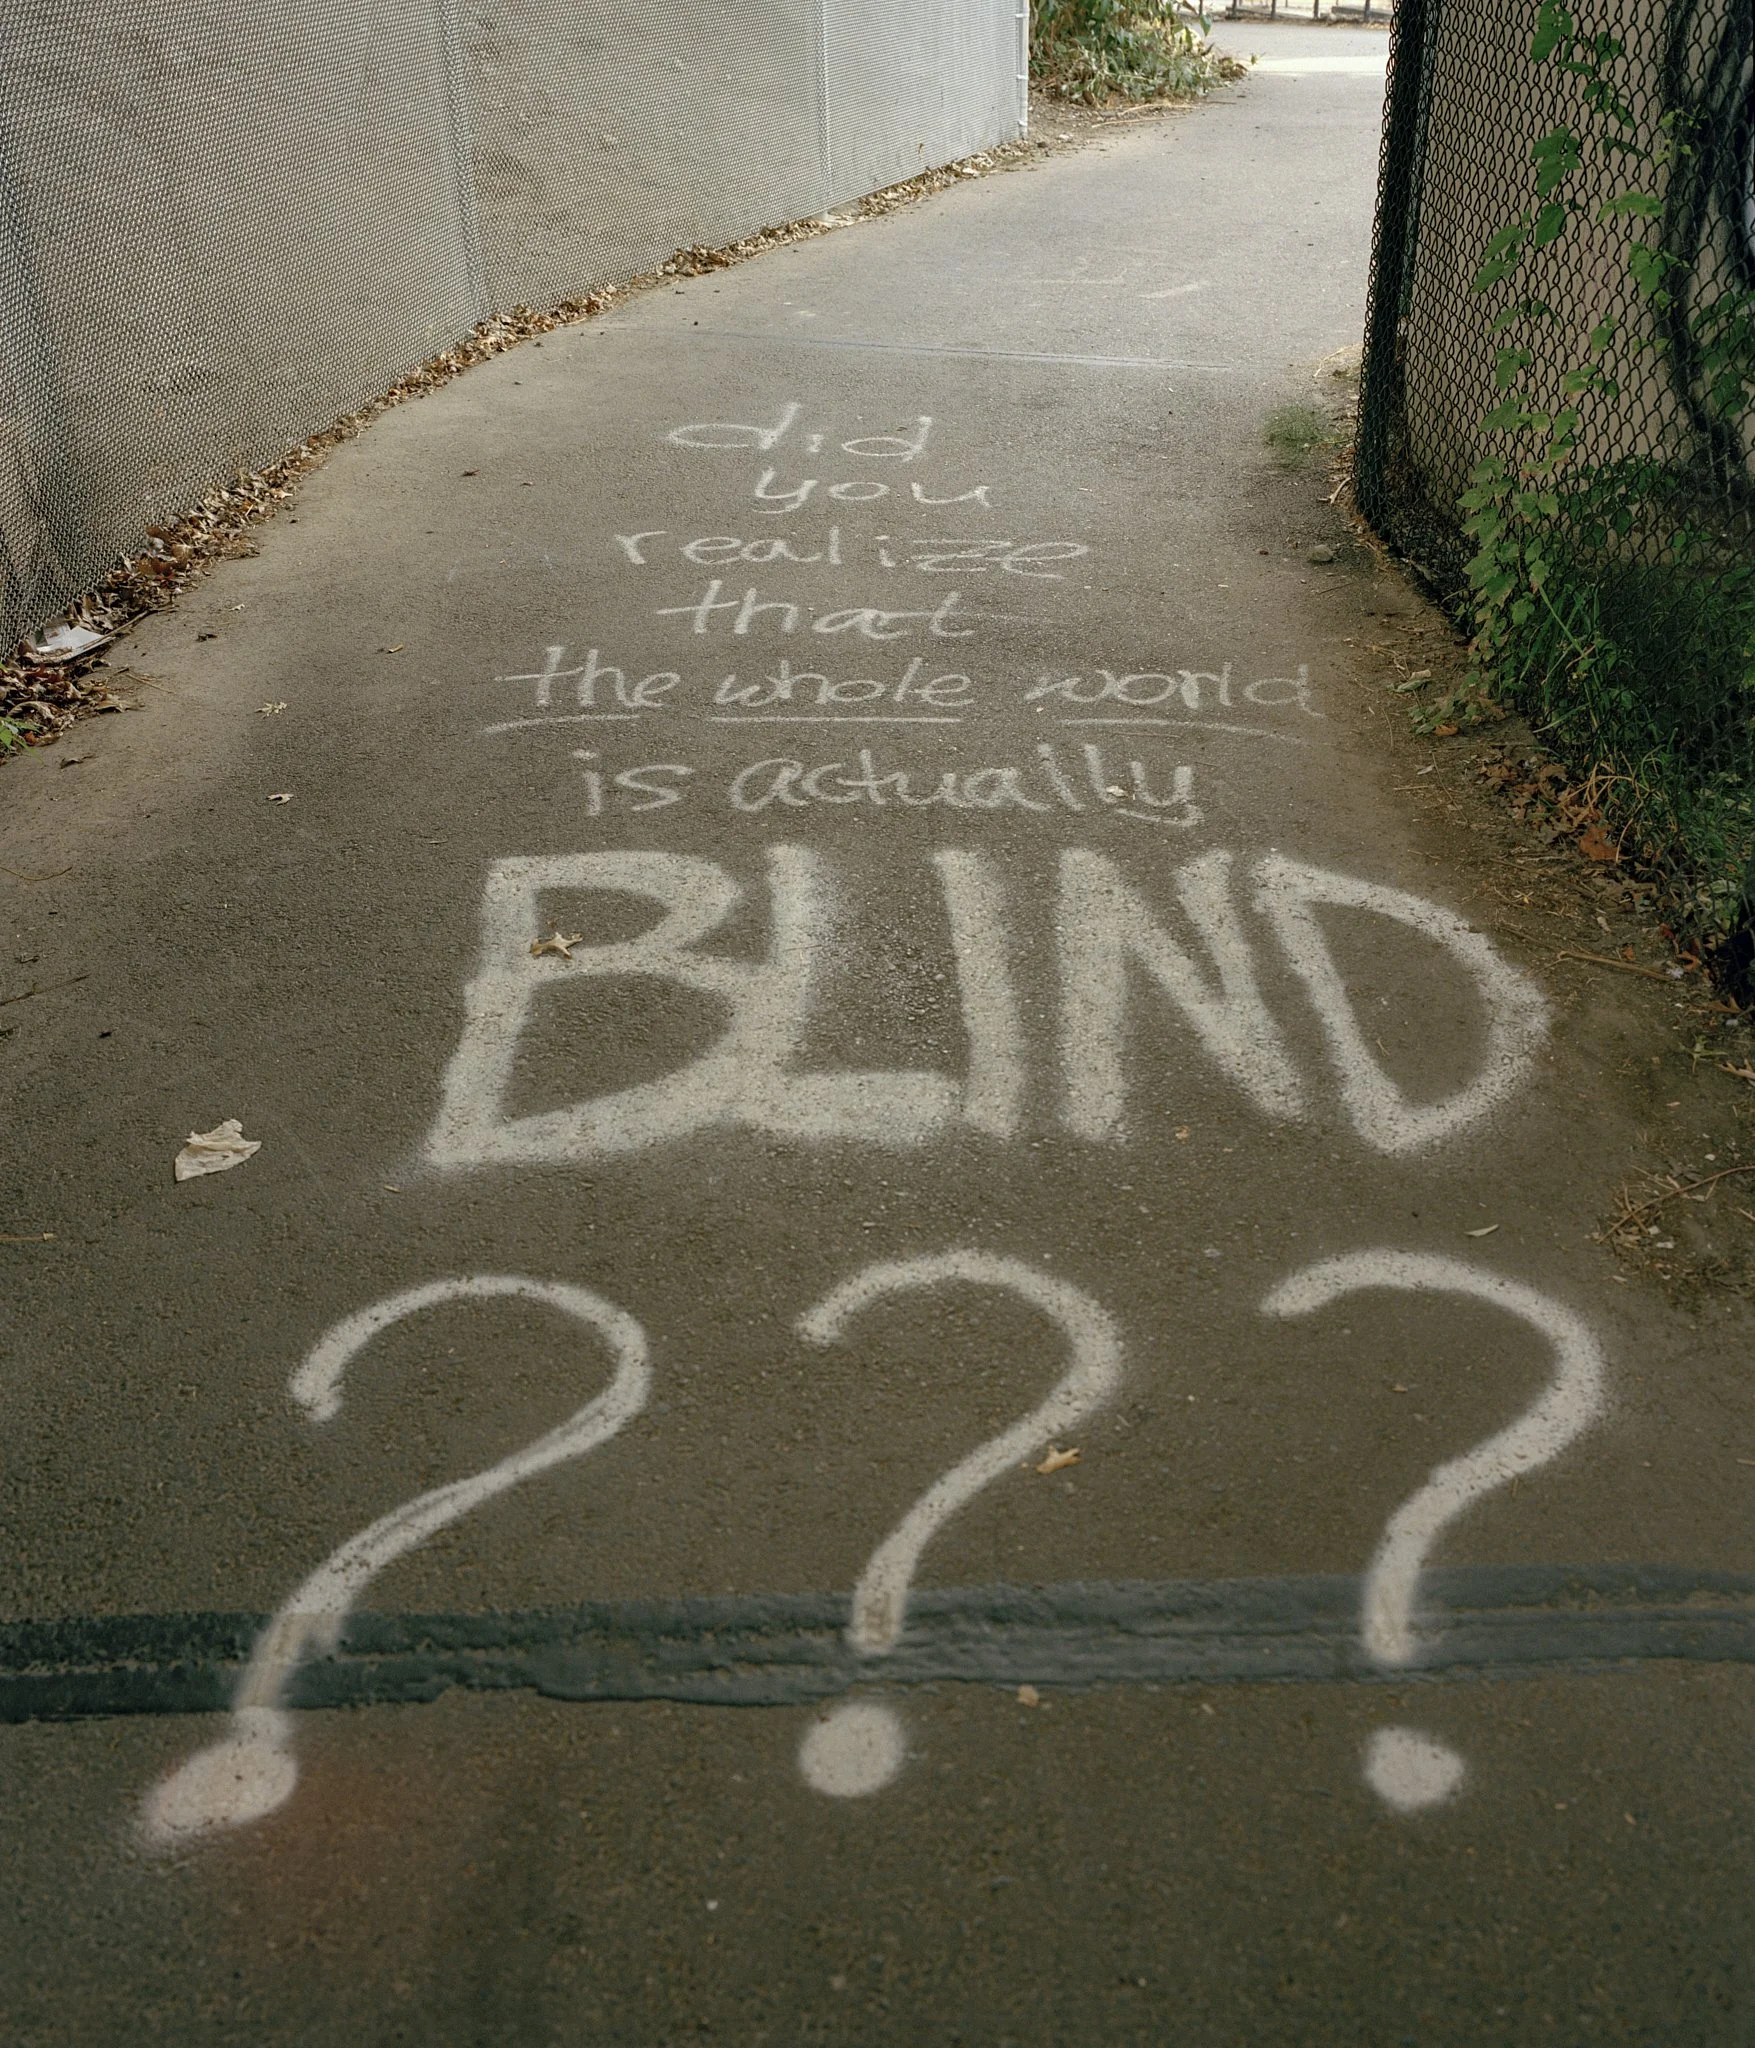 did
you
realize
that
the whole world
is actually
BLIND
???